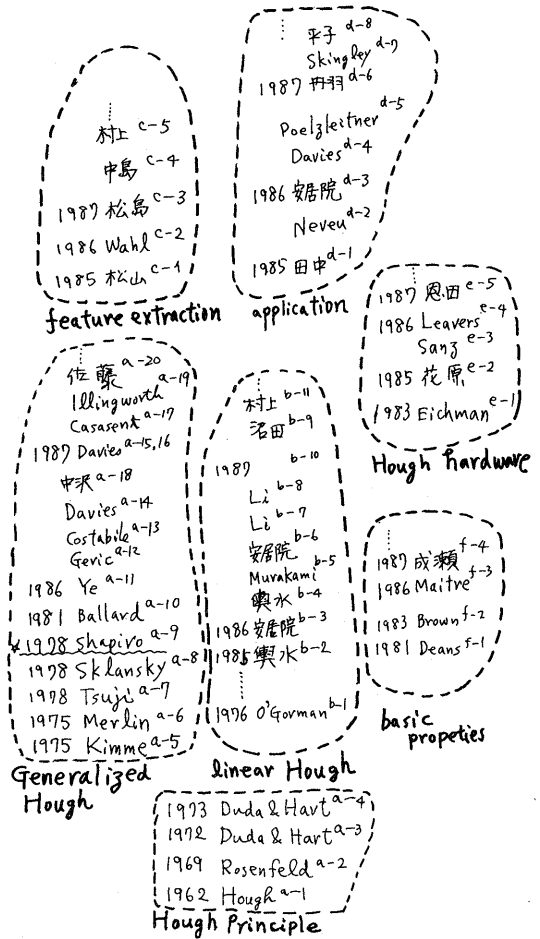 村上 c-5
中島 c-4
1987 松島 c-3
1986 Wahl c-2
1985 松山 c-1
feature extraction
平子 d-8
Skingley d-7
1987 丹羽 d-6
Poelzleitner d-5
Davies d-4
1986 安居院 d-3
Neveu d-2
1985 田中 d-1
application
1987 恩田 e-5
1986 Leavers e-4
Sanz e-3
1985 花原 e-2
1983 Eichman e-1
Hough hardware
佐藤 a-20
Illingworth a-19
Casasent a-17
1987 Davies a-15,16
中沢 a-18
Davies a-14
Costabile a-13
Geric a-12
1986 Ye a-11
1981 Ballard a-10
1978 Shapiro a-9
1978 Sklansky a-8
1978 Tsuji a-7
1975 Merlin a-6
1975 Kimme a-5
Generalized
Hough
村上 b-11
沼田 b-9
1987 b-10
Li b-8
Li b-7
安居院 b-6
Murakami b-5
輿水 b-4
1986 安居院 b-3
1985 輿水 b-2
1976 O'Gorman b-1
linear Hough
1987 成瀬 f-4
1986 Maitre f-3
1983 Brown f-2
1981 Deans f-1
basic
propeties
1973 Duda & Hart a-4
1972 Duda & Hart a-3
1969 Rosenfeld a-2
1962 Hough a-1
Hough Principle